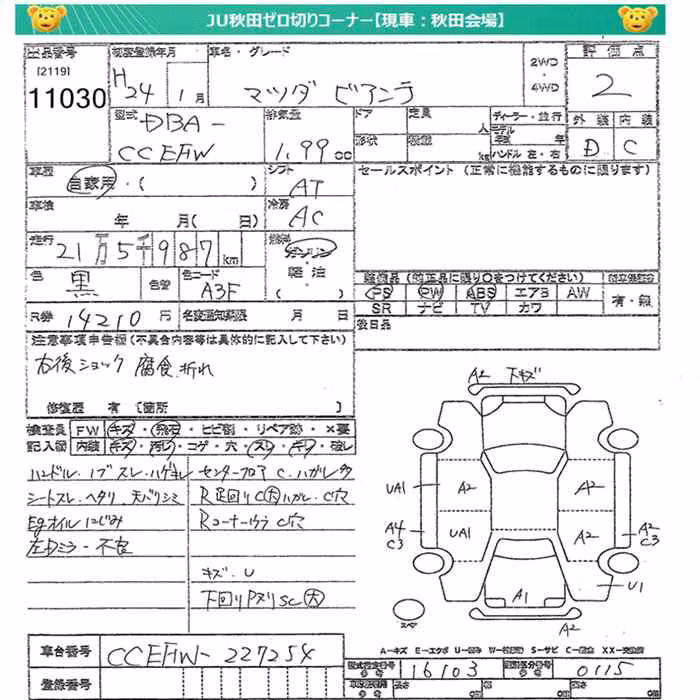 JU秋田ゼロ切りコーナー【現車：秋田会場】
出品番号
[2119]
11030
初度登録年月
H24年 1月
車名・グレード
マツダ ビアンテ
2WD
・
4WD
評価点
2
外装 内装
D C
型式
DBA-
CCEFW
排気量
1.99 cc
ドア
形状
定員
人
積載
kg
ディーラー・並行
モデル
年式 年
ハンドル 左・右
車歴
自家用・( )
シフト
AT
車検
年 月( 日)
冷房
AC
走行
21万5千987km
燃料
ガソリン
軽油
( )
色
黒
色替
色コード
A3F
R券
14210円
名変通知期限
月 日
セールスポイント (正常に機能するものに限ります)
装備品 (純正品に限り○をつけてください)
PS PW ABS エアB AW
SR ナビ TV カワ
有・無
後日品
注意事項申告欄(不具合内容等は具体的に記入して下さい)
右後ショック 腐食.折れ
修復歴 有 [箇所 ]
検査員 FW キズ・飛石・ヒビ割・リペア跡・×要
記入欄 内装 キズ・汚れ・コゲ・穴・スレ・キレ・破レ
ハンドル・ノブ スレ.ハゲキレ
シートスレ・ヘタリ.天バリシミ
Egオイルにじみ
左Dミラー不良
センターフロア C.ハガレ多
R足回りC大ハガレ.C穴
RコーナーウラC穴
キズ.U
下回りPヌリSC大
A2 下キズ
UA1 A2 A2
A4 C3 UA1 A2 A2 C3
A1 U1
スペア
A2
A-キズ E-エクボ U-凹み W-波凹り S-サビ C-腐食 XX-交換済
車台番号
CCEFW-227254
登録番号
型式指定番号
16103
類別区分番号
0115
長さ 幅 高さ